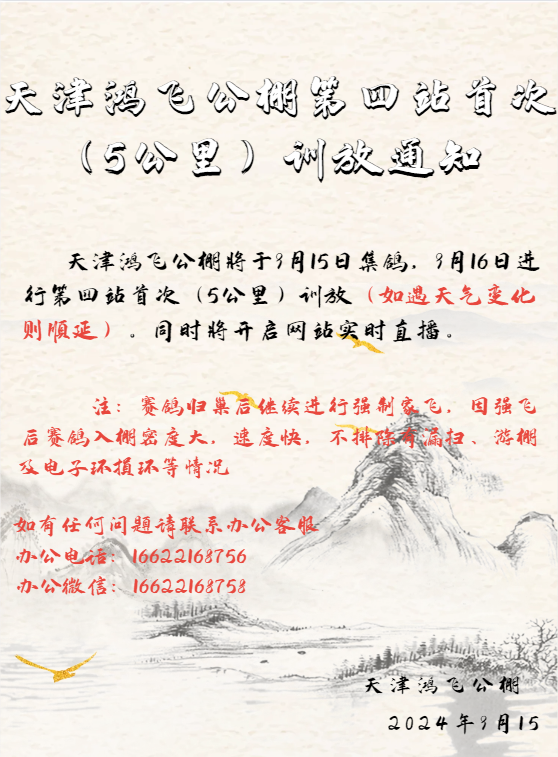 天津鸿飞公棚第四站首次
（5公里）训放通知
天津鸿飞公棚將于9月15日集鸽，9月16日进
行第四站首次（5公里）训放（如遇天气变化
则順延）。同时將开启网站实时直播。
注：赛鸽归巢后继续进行强制家飞，因强飞
后赛鸽入棚密度大，速度快，不排除有漏扫、游棚
及电子环损坏等情况
如有任何问题请联系办公客服
办公电话：16622168756
办公微信：16622168758
天津鸿飞公棚
2024年9月15